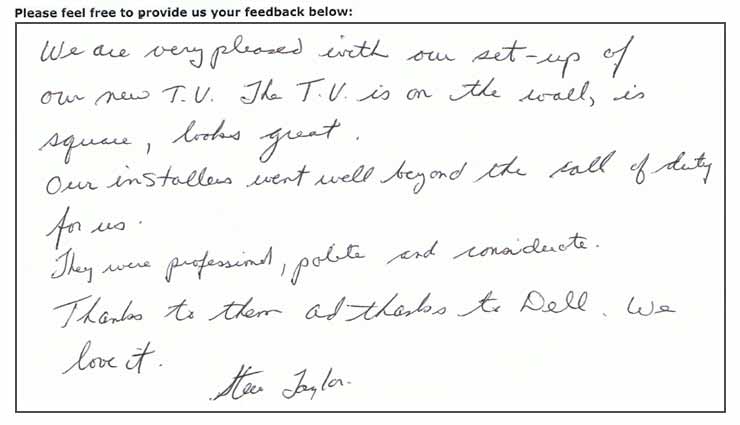 Please feel free to provide us your feedback below:
We are very pleased with our set-up of
our new T.V. The T.V. is on the wall, is
square, looks great.
Our installers went well beyond the call of duty
for us.
They were professional, polite and considerate.
Thanks to them ad thanks to Dell. We
love it.
Steve Taylor.